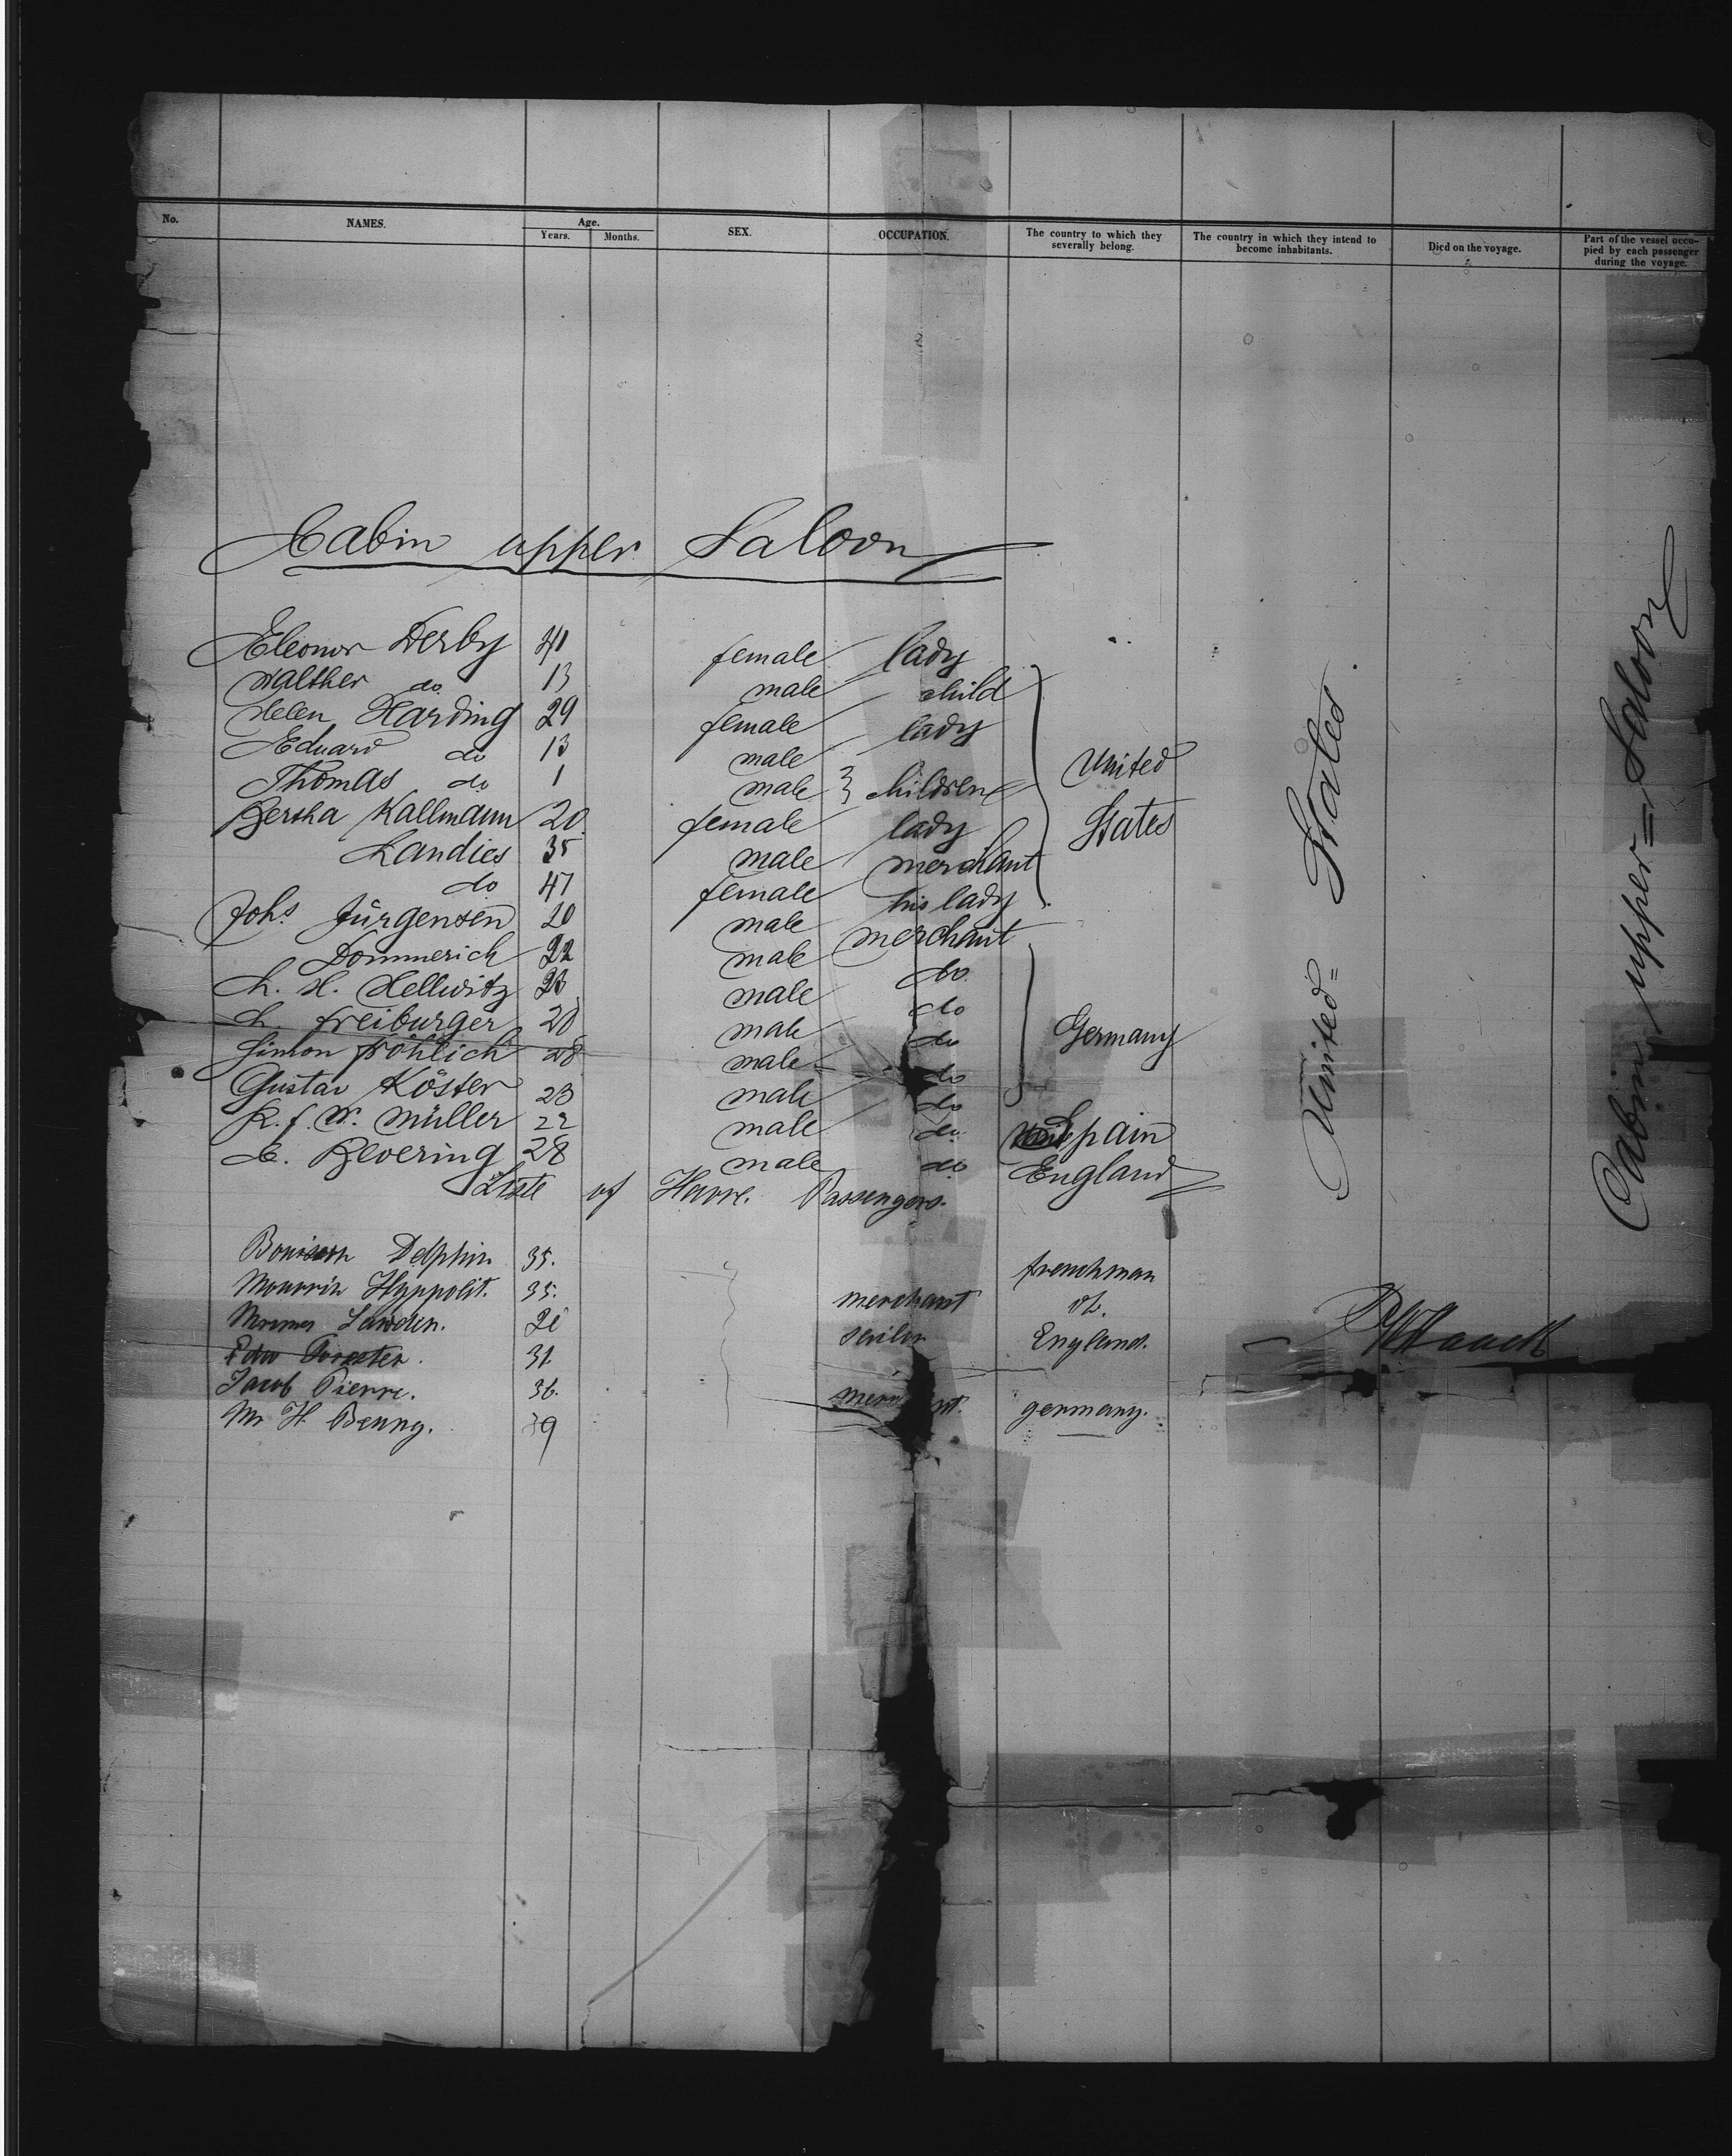 No. NAMES. Age. Years. Months. SEX. OCCUPATION. The country to which they severally belong. The country in which they intend to become inhabitants. Died on the voyage. Part of the vessel occupied by each passenger during the voyage.
Cabin upper Saloon
Eleonor Derby 41 female lady
Walther do 13 male child
Helen Harding 29 female lady
Eduard do 13 male
Thomas do 1 male } children
United
Bertha Kallmann 20 female lady
States
Landies 35 male merchant
do 47 female his lady
Johs Jürgensen 20 male merchant
Dommerich 22 male do
L. H. Hellwitz male do
L. Freiburger 20 male do
Germany
Simon Fröhlich 28 male do
Gustav Köster 23 male do
R. f. W. Müller 22 male do Spain
C. Bevering 28 male do England
United= States
Cabin upper=Saloon
Liste of Havre. Passengers.
Delphin 35. frenchman
Hyppolit. 35. merchant do.
England.
Edw 31
Jacob Pierre. 36. germany.
Mr H. Benny. 39